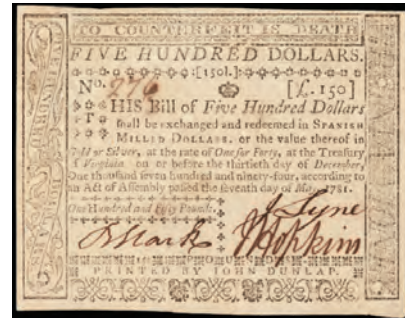 TO COUNTERFEIT IS DEATH
FIVE HUNDRED DOLLARS.
[150l.]
No. 276 [£. 150]
THIS Bill of Five Hundred Dollars
shall be exchanged and redeemed in SPANISH
MILLED DOLLARS, or the value thereof in
Gold or Silver, at the rate of One for Forty, at the Treasury
of Virginia on or before the thirtieth day of December,
One thousand seven hundred and ninety-four, according to
an Act of Assembly passed the seventh day of May, 1781.
One Hundred and Fifty Pounds.
J Lyne
J Hopkins
POUNDS
PRINTED BY JOHN DUNLAP.